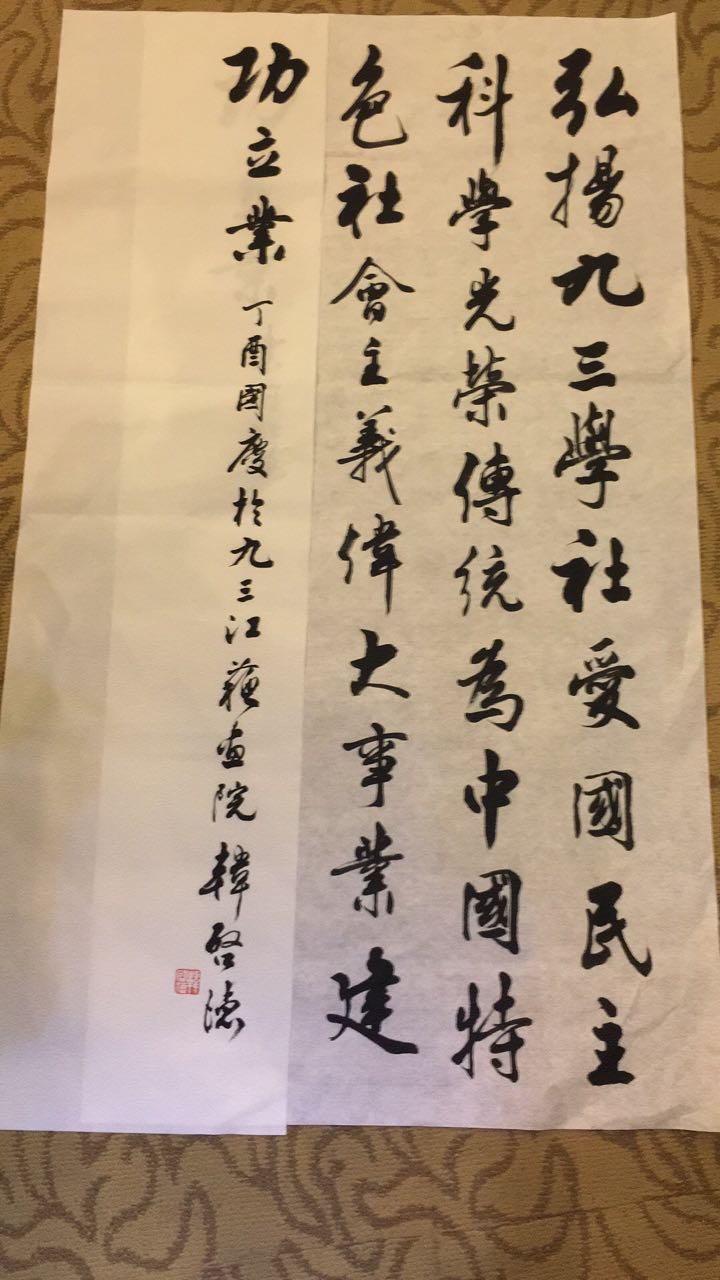 弘揚九三學社愛國民主
科學光榮傳統為中國特
色社會主義偉大事業建
功立業
丁酉國慶於九三江蘇畫院
韓啓德